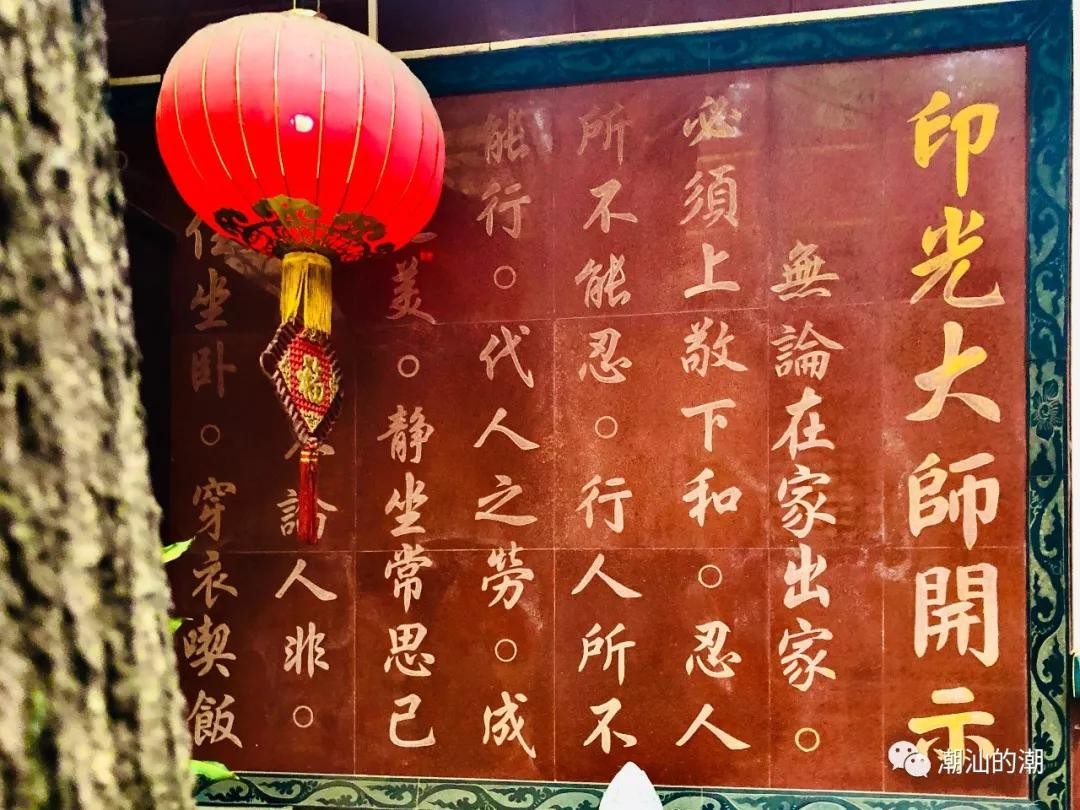 印光大師開示
無論在家出家。
必須上敬下和。忍人
所不能忍。行人所不
能行。代人之勞。成
美。静坐常思己
論人非。
住坐卧。穿衣喫飯
福
潮汕的潮